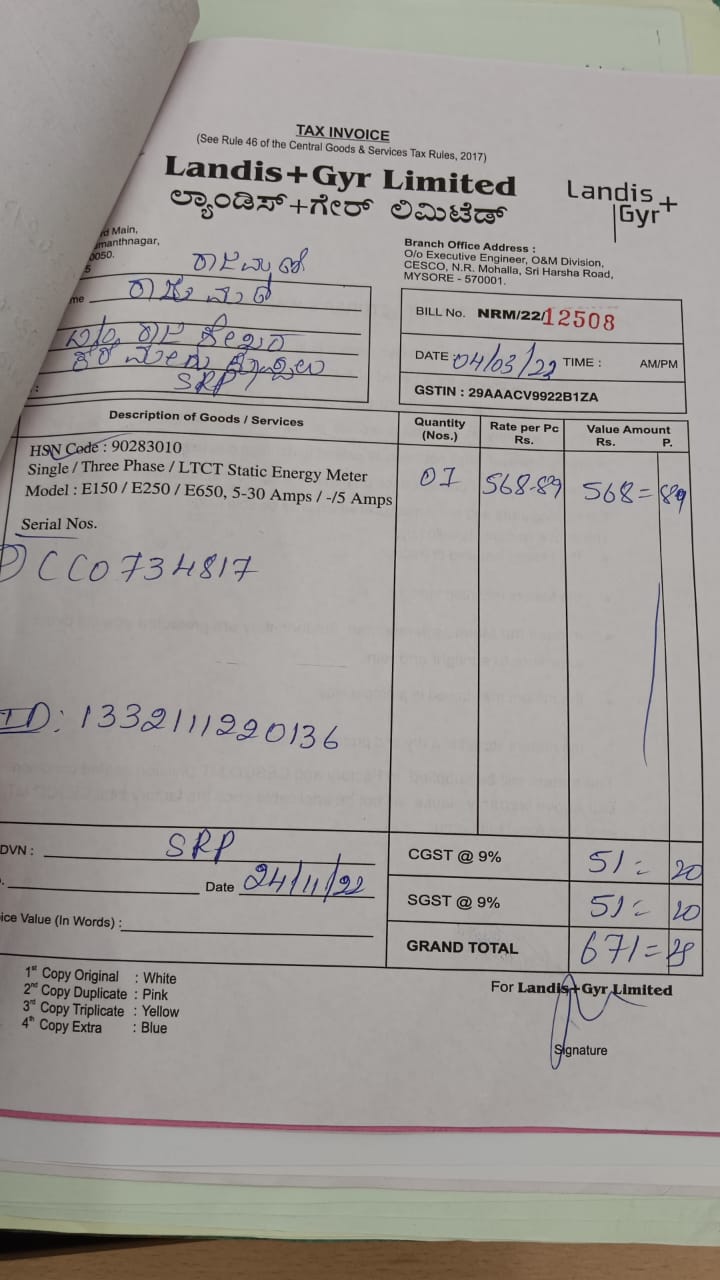 TAX INVOICE
(See Rule 46 of the Central Goods & Services Tax Rules, 2017)
Landis+Gyr Limited
ಲ್ಯಾಂಡಿಸ್+ಗೇರ್ ಲಿಮಿಟೆಡ್
Landis+
Gyr
Main,
manthnagar,
0050.
5
Branch Office Address :
O/o Executive Engineer, O&M Division,
CESCO, N.R. Mohalla, Sri Harsha Road,
MYSORE - 570001.
me
SRP
BILL No. NRM/22/12508
DATE : 04/03/23 TIME : AM/PM
GSTIN : 29AAACV9922B1ZA
Description of Goods / Services Quantity (Nos.) Rate per Pc Rs. Value Amount Rs. P.
HSN Code : 90283010
Single / Three Phase / LTCT Static Energy Meter
Model : E150 / E250 / E650, 5-30 Amps / -/5 Amps
01 568-89 568=89
Serial Nos.
CC0734817
ID: 1332111220136
DVN : SRP
Date 24/11/22
ice Value (In Words) :
CGST @ 9% 51= 20
SGST @ 9% 51= 20
GRAND TOTAL 671=
1st Copy Original : White
2nd Copy Duplicate : Pink
3rd Copy Triplicate : Yellow
4th Copy Extra : Blue
For Landis+Gyr Limited
Signature